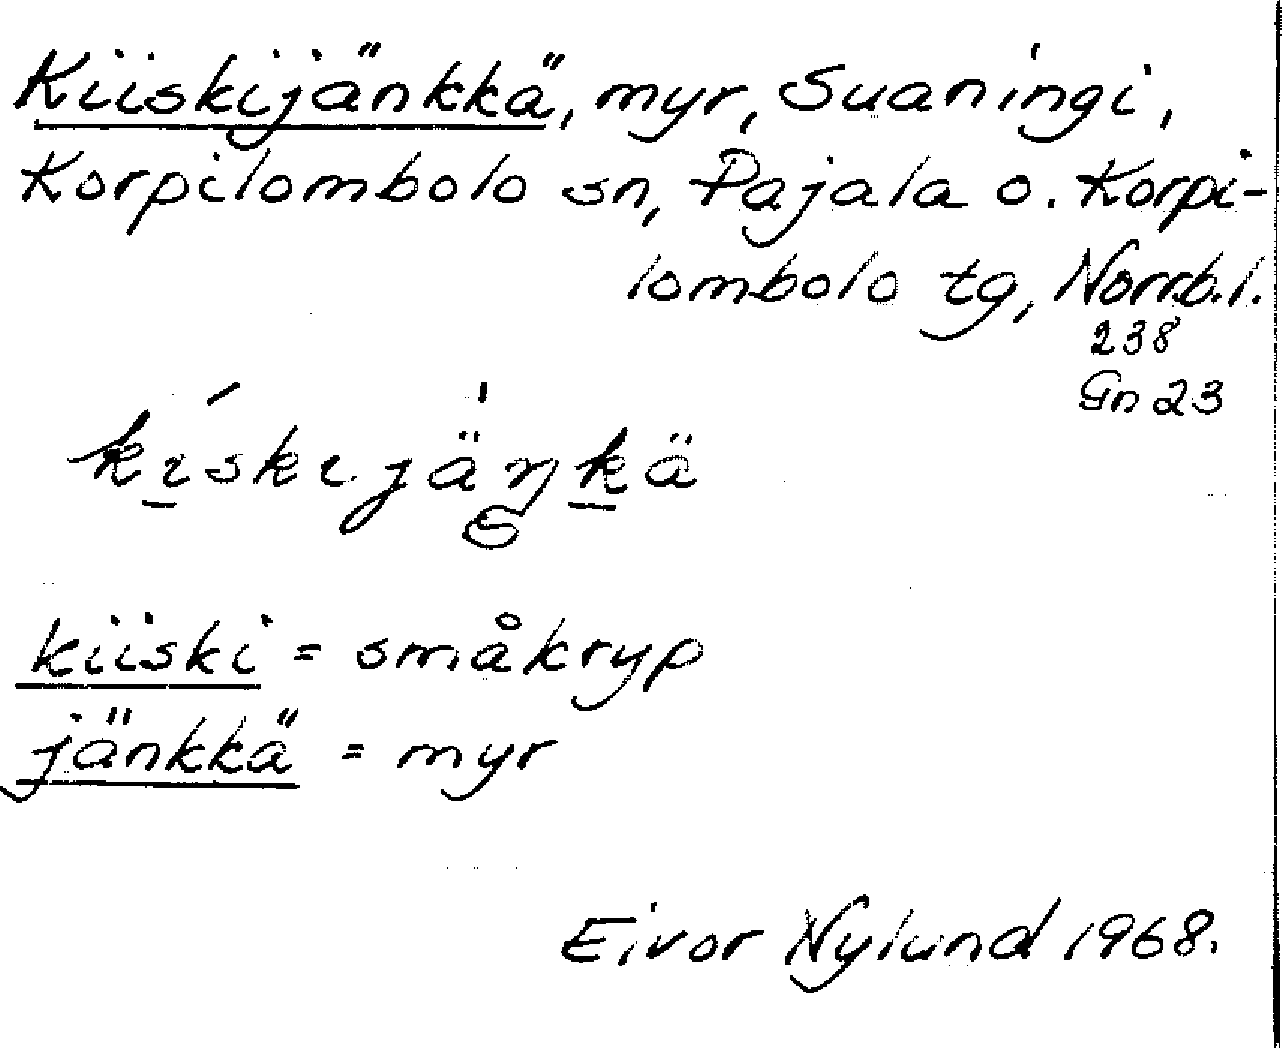 Kiiskijänkkä, myr, Suaningi,
Korpilombolo sn, Pajala o. Korpi-
lombolo tg, Norrb.l.
238
Gn 23
kiiski = småkryp
jänkkä = myr
Eivor Nylund 1968.